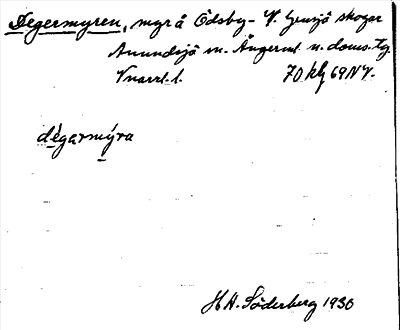 Degermyren, myr å Ödsby- V. Gensjö skogar
Anundsjö sn. Ångerml. n. doms. tg.
Vnarrl. l. 70 kly 69NV.
dègarmýra
H A. Söderberg 1930